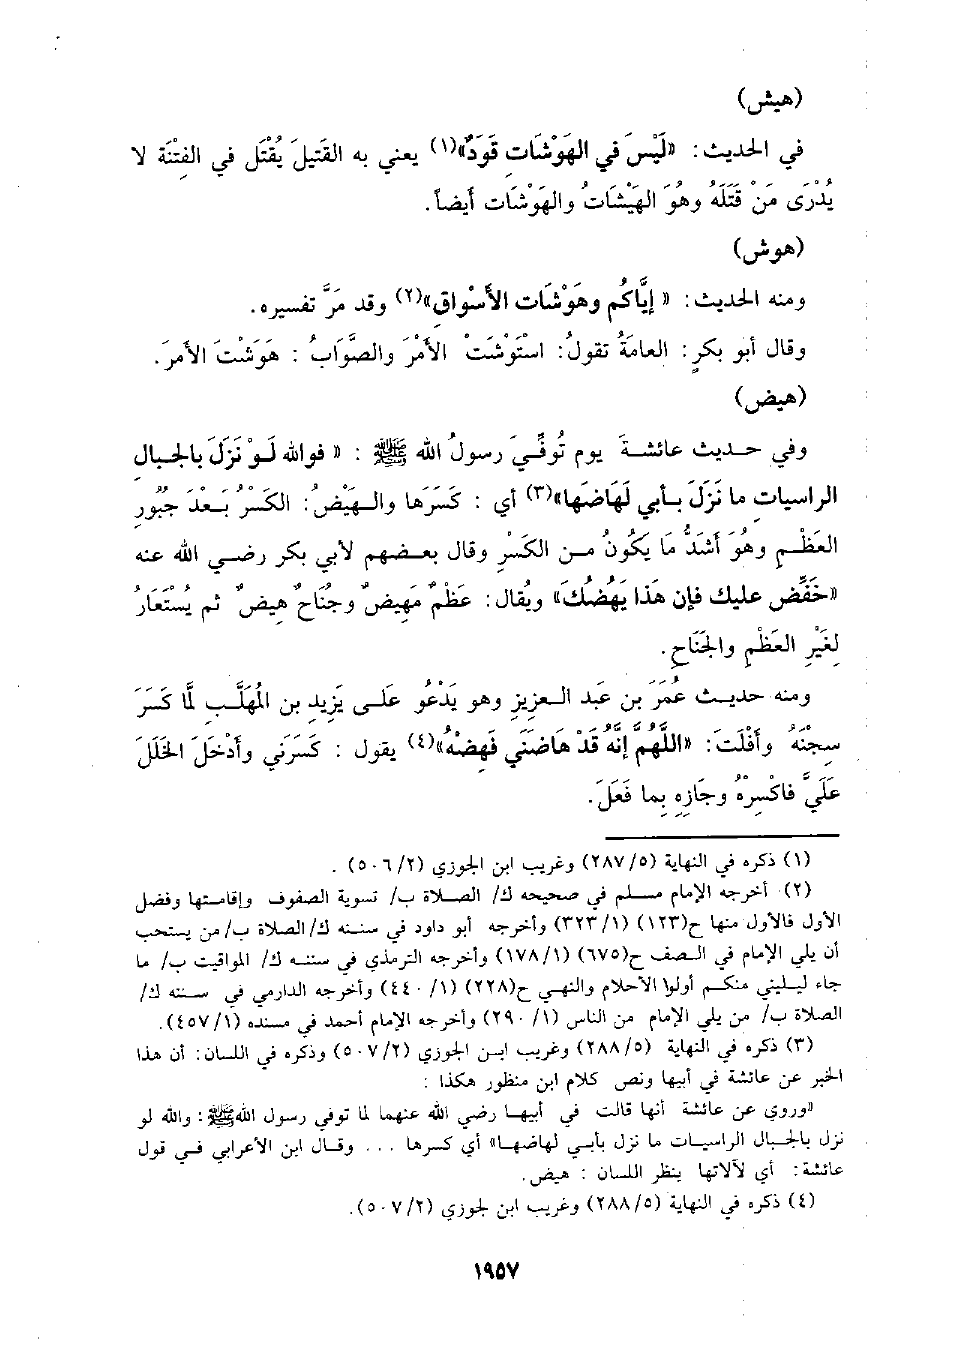 (هيش)
في الحديث: «لَيْسَ في الهَوْشَاتِ قَوَدٌ»(١) يعني به القَتيلَ يُقْتَل في الفِتْنَة لا
يُدْرَى مَنْ قَتَلَهُ وهُوَ الهَيْشَاتُ والهَوْشَات أيضاً.
(هوش)
ومنه الحديث: « إيَّاكُم وهَوْشَات الأَسْواقِ»(٢) وقد مَرَّ تفسيره.
وقال أبو بكرٍ: العامَةُ تقولُ: استَوْشَتْ الأَمْرَ والصَّوَابُ: هَوَشْتَ الأمرَ.
(هيض)
وفي حديث عائشةَ يوم تُوفِّيَ رسولُ الله ﷺ : « فوالله لَوْ نَزَلَ بالجبالِ
الراسياتِ ما نَزَلَ بأبي لَهَاضَها»(٣) أي : كَسَرَها والهَيْضُ: الكَسْرُ بَعْدَ جُبُورِ
العَظْمِ وهُوَ أشَدُّ مَا يَكُونُ من الكَسْرِ وقال بعضهم لأبي بكر رضي الله عنه
«خَفِّض عليك فإن هَذا يَهْضُكَ» ويُقال: عَظْمٌ مَهِيضٌ وجُنَاحٌ هِيضٌ ثم يُسْتَعَارُ
لِغَيْرِ العَظْمِ والجَنَاحِ.
ومنه حديث عُمَرَ بن عَبد العزيزِ وهو يَدْعُو عَلى يَزِيدِ بن المُهَلَّبِ لمَّا كَسَرَ
سِجْنَهُ وأفْلَتَ: «اللَّهُمَّ إنَّهُ قَدْ هَاضَنَي فَهِضْهُ»(٤) يقول : كَسَرَني وأدْخَلَ الخَلَلَ
عَلَيَّ فاكْسِرْهُ وجَازِهِ بِما فَعَلَ.
(١) ذكره في النهاية (٢٨٧/٥) وغريب ابن الجوزي (٥٠٦/٢) .
(٢) أخرجه الإمام مسلم في صحيحه ك/ الصلاة ب/ تسوية الصفوف وإقامتها وفضل
الأول فالأول منها ح(١٢٣) (٣٢٣/١) وأخرجه أبو داود في سننه ك/ الصلاة ب/ من يستحب
أن يلي الإمام في الصف ح(٦٧٥) (١٧٨/١) وأخرجه الترمذي في سننه ك/ المواقيت ب/ ما
جاء ليليني منكم أولوا الأحلام والنهي ح(٢٢٨) (٤٤٠/١) وأخرجه الدارمي في سننه ك/
الصلاة ب/ من يلي الإمام من الناس (٢٩٠/١) وأخرجه الإمام أحمد في مسنده (٤٥٧/١).
(٣) ذكره في النهاية (٢٨٨/٥) وغريب ابن الجوزي (٥٠٧/٢) وذكره في اللسان: أن هذا
الخبر عن عائشة في أبيها ونص كلام ابن منظور هكذا :
«وروي عن عائشة أنها قالت في أبيها رضي الله عنهما لما توفي رسول الله ﷺ : والله لو
نزل بالجبال الراسيات ما نزل بأبي لهاضها» أي كسرها ... وقال ابن الأعرابي في قول
عائشة: أي لآلاتها ينظر اللسان : هيض.
(٤) ذكره في النهاية (٢٨٨/٥) وغريب ابن لجوزي (٥٠٧/٢).
١٩٥٧